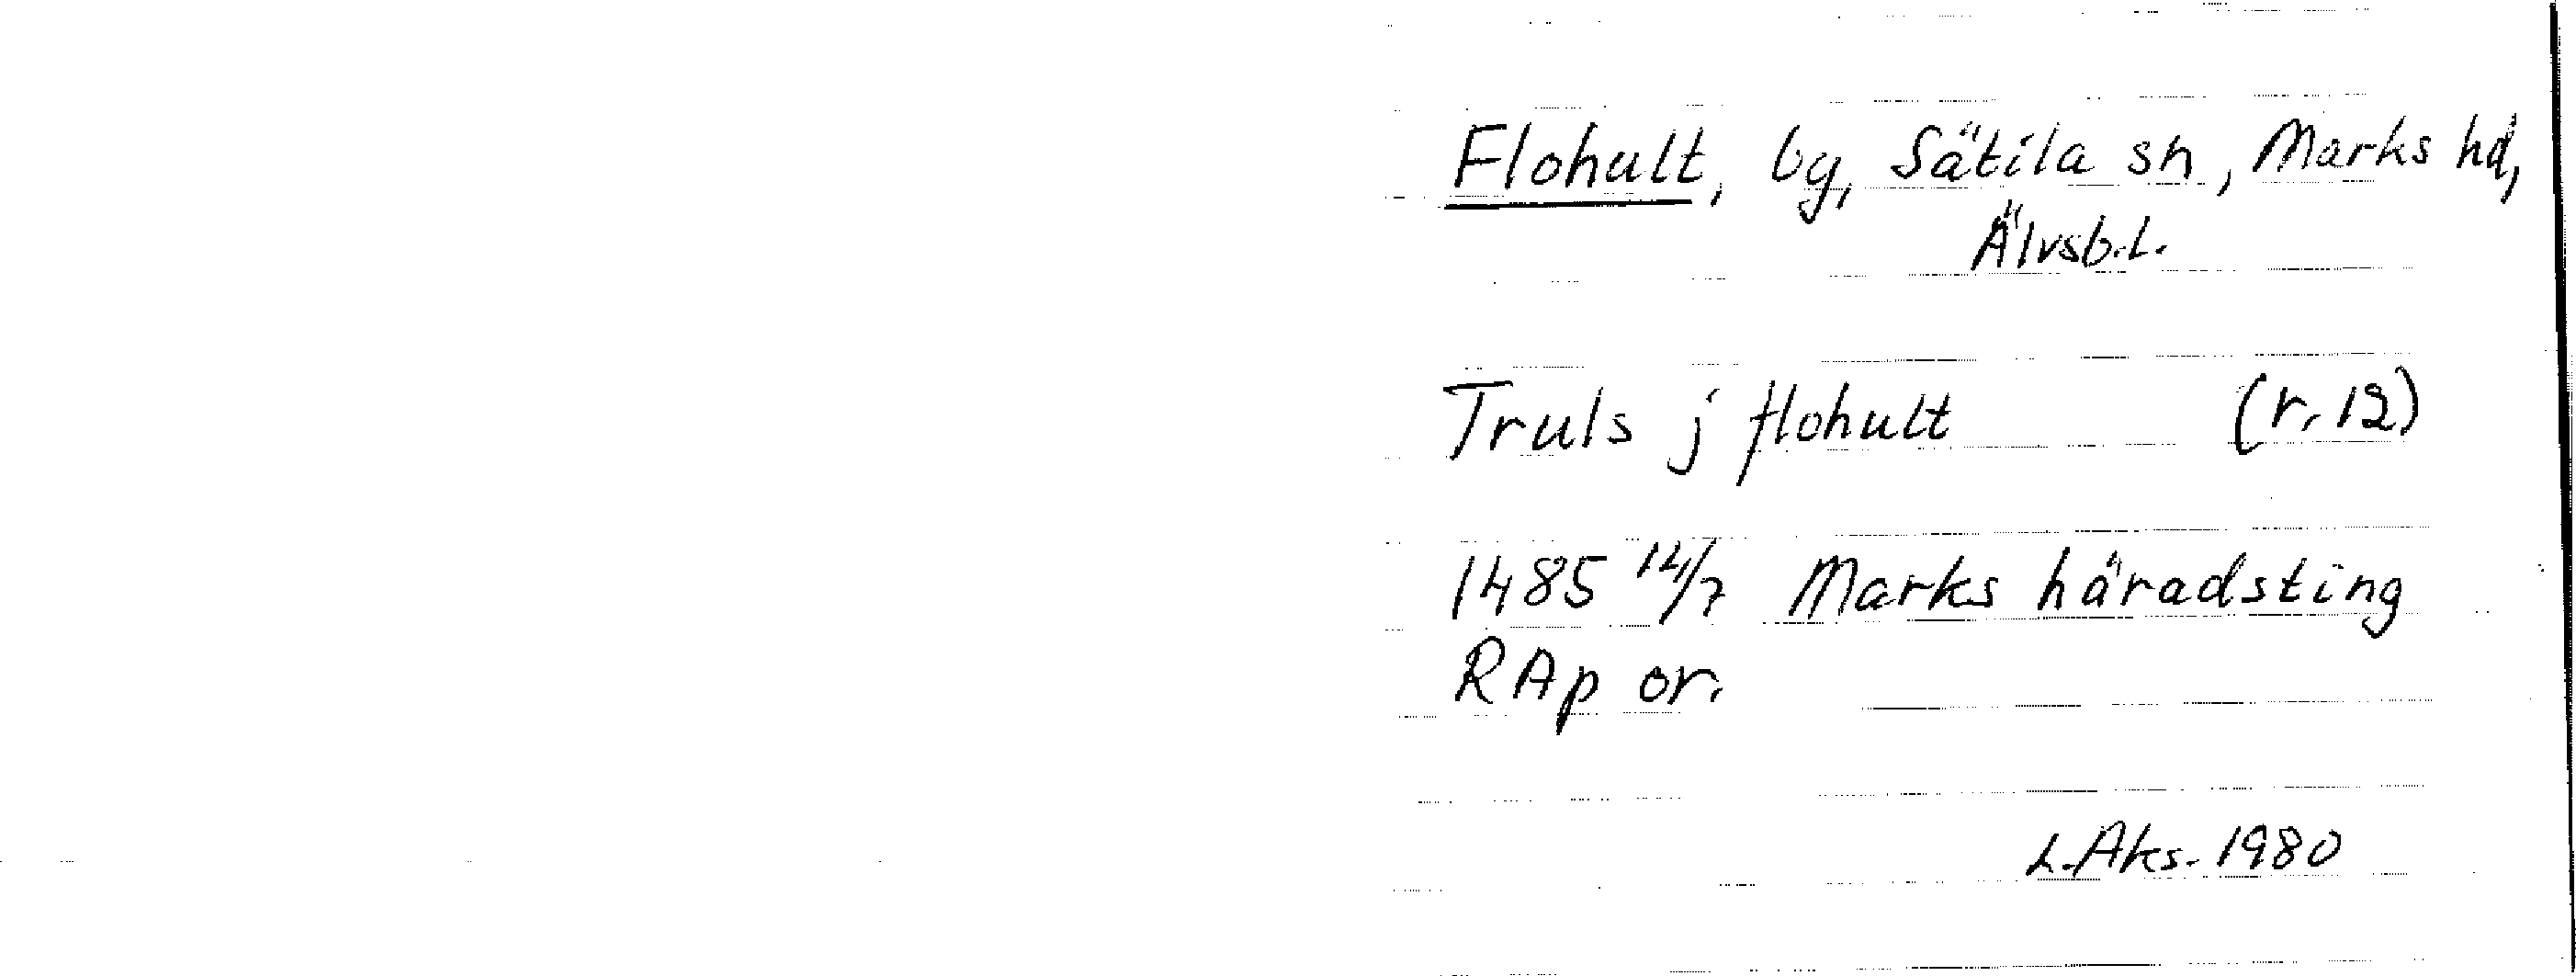 Flohult, by, Sätila sn, Marks hd,
Älvsb.l.
Truls j flohult (r. 12)
1485 14/7 Marks häradsting
RAp or.
L.Aks. 1980